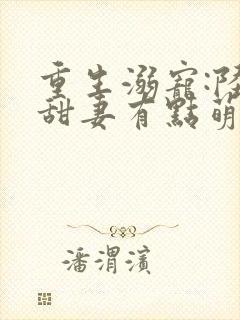 重生溺寵:隆
甜妻有點萌
潘渭濱